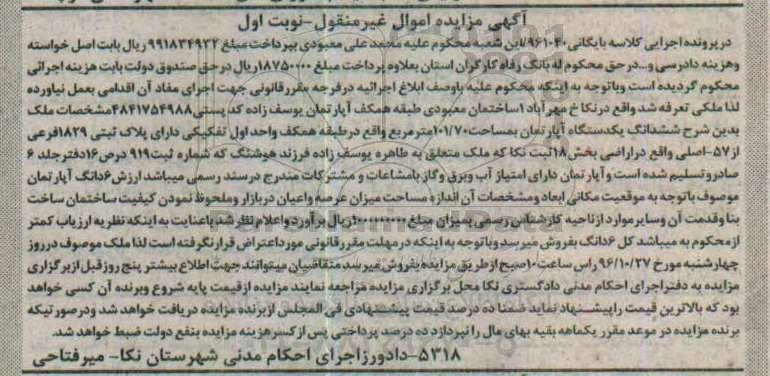 آگهی مزایده اموال غیرمنقول-نوبت اول
در پرونده اجرایی کلاسه بایگانی ۹۶۱۰۴۰ این شعبه محکوم علیه محمد علی معبودی بپرداخت مبلغ ۹۹۱۸۳۴۹۳۲ ریال بابت اصل خواسته
وهزینه دادرسی و...درحق محکوم له بانک رفاه کارگران استان بعلاوه پرداخت مبلغ ۱۸۷۵۰۰۰۰ریال درحق صندوق دولت بابت هزینه اجرائی
محکوم گردیده است وباتوجه به اینکه محکوم علیه باوصف ابلاغ اجرائیه درفرجه مقررقانونی جهت اجرای مفاد آن اقدامی بعمل نیاورده
لذا ملکی تعرفه شد واقع درنکا خ مهرآباد ۱ساختمان معبودی طبقه همکف آپارتمان یوسف زاده کد پستی۴۸۴۱۷۵۴۹۸۸مشخصات ملک
بدین شرح ششدانگ یکدستگاه آپارتمان بمساحت۱۰۱/۷۰مترمربع واقع درطبقه همکف واحد اول تفکیکی دارای پلاک ثبتی ۱۸۲۹فرعی
از۵۷-اصلی واقع دراراضی بخش۱۸ثبت نکا که ملک متعلق به طاهره یوسف زاده فرزند هوشنگ که شماره ثبت۹۱۹ درص۱۶دفترجلد ۶
صادروتسلیم شده است و آپارتمان دارای امتیاز آب وبرق وگاز بامشاعات و مشترکات مندرج درسند رسمی میباشد ارزش۶دانگ آپارتمان
موصوف باتوجه به موقعیت مکانی ابعاد ومشخصات آن اندازه مساحت میزان عرصه واعیان دربازار وملحوظ نمودن کیفیت ساختمان ساخت
بنا وقدمت آن وسایر موارد ازناحیه کارشناس رسمی بمیزان مبلغ ریال برآورد واعلام نظر شد باعنایت به اینکه نظریه ارزیاب کمتر
ازمحکوم به میباشد کل ۶دانگ بفروش میرسد وباتوجه به اینکه درمهلت مقررقانونی مورداعتراض قرارنگرفته است لذا ملک موصوف درروز
چهارشنبه مورخ ۹۶/۱۰/۲۷ راس ساعت۱۰صبح ازطریق مزایده بفروش میرسد متقاضیان میتوانند جهت اطلاع بیشتر پنج روز قبل ازبرگزاری
مزایده به دفتراجرای احکام مدنی دادگستری نکا محل برگزاری مزایده مراجعه نمایند مزایده ازقیمت پایه شروع وبرنده آن کسی خواهد
بود که بالاترین قیمت راپیشنهاد نماید ضمنا ده درصد قیمت پیشنهادی فی المجلس ازبرنده مزایده دریافت خواهد شد ودرصورتیکه
برنده مزایده در موعد مقرر یکماهه بقیه بهای مال را نپردازد ده درصد پرداختی پس از کسرهزینه مزایده بنفع دولت ضبط خواهد شد.
۵۳۱۸-دادورزاجرای احکام مدنی شهرستان نکا- میرفتاحی